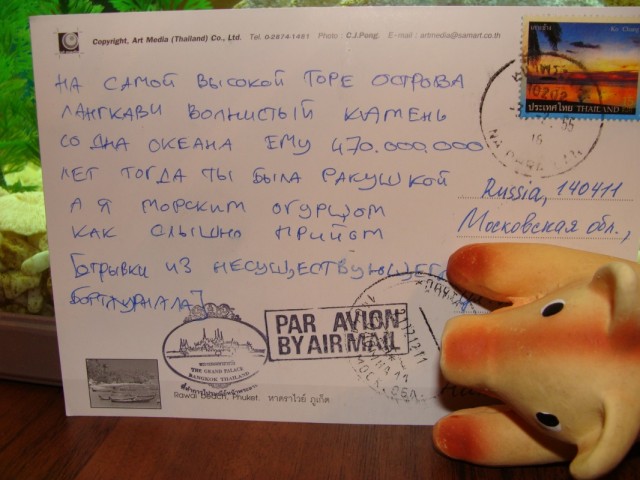 Copyright, Art Media (Thailand) Co., Ltd. Tel. 0-2874-1451 Photo : C.J.Pong. E-mail : artmedia@samart.co.th
НА САМОЙ ВЫСОКОЙ ГОРЕ ОСТРОВА
ЛАНГКАВИ ВОЛНИСТЫЙ КАМЕНЬ
СО ДНА ОКЕАНА ЕМУ 470.000.000
ЛЕТ ТОГДА ТЫ БЫЛА РАКУШКОЙ
А Я МОРСКИМ ОГУРЦОМ
КАК СЛЫШНО ПРИЁМ
[ОТРЫВКИ ИЗ НЕСУЩЕСТВУЮЩЕГО
БОРТЖУРНАЛА]
Ko Chang
ประเทศไทย THAILAND
10202
16
Russia, 140411
Московская обл.,
PAR AVION
BY AIR MAIL
THE GRAND PALACE
BANGKOK THAILAND
Rawai Beach, Phuket. หาดราไวย์ ภูเก็ต